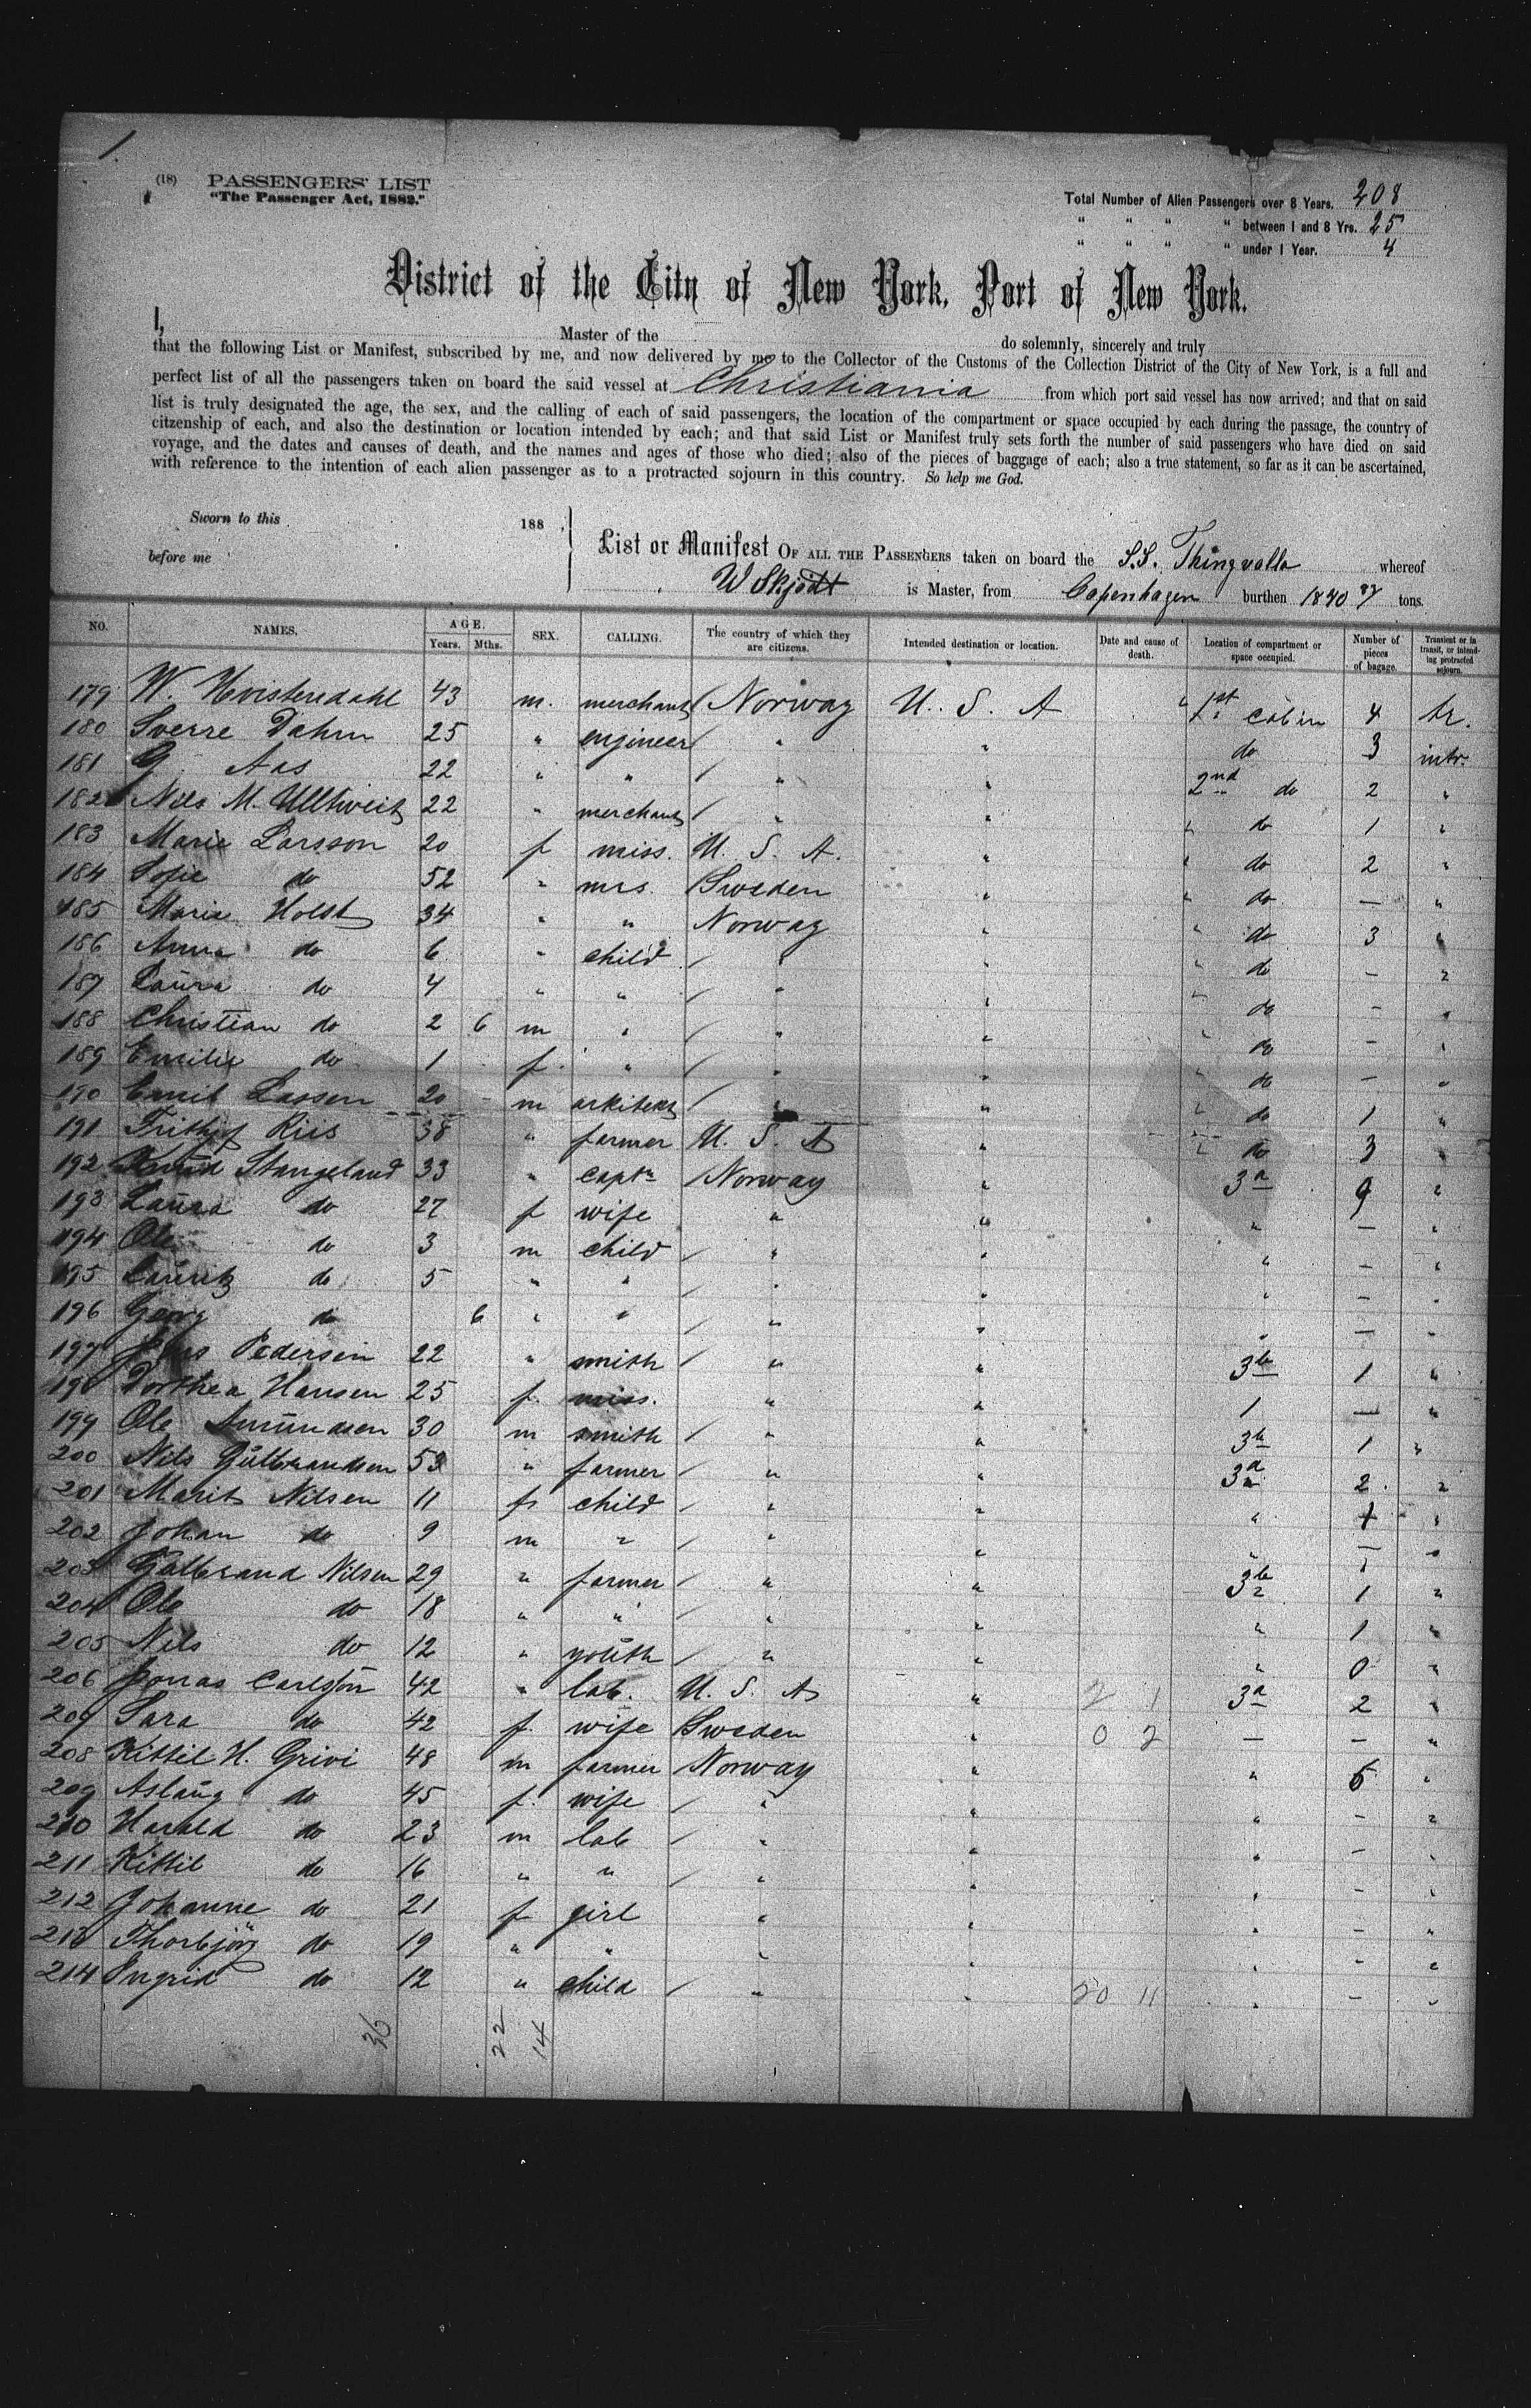 1.
(18) PASSENGERS' LIST
"The Passenger Act, 1882."
Total Number of Alien Passengers over 8 Years. 208
" " " " between 1 and 8 Yrs. 25
" " " " under 1 Year. 4
District of the City of New York, Port of New York.
I, Master of the do solemnly, sincerely and truly
that the following List or Manifest, subscribed by me, and now delivered by me to the Collector of the Customs of the Collection District of the City of New York, is a full and
perfect list of all the passengers taken on board the said vessel at Christiania from which port said vessel has now arrived; and that on said
list is truly designated the age, the sex, and the calling of each of said passengers, the location of the compartment or space occupied by each during the passage, the country of
citzenship of each, and also the destination or location intended by each; and that said List or Manifest truly sets forth the number of said passengers who have died on said
voyage, and the dates and causes of death, and the names and ages of those who died; also of the pieces of baggage of each; also a true statement, so far as it can be ascertained,
with reference to the intention of each alien passenger as to a protracted sojourn in this country. So help me God.
Sworn to this 188 ,
before me
List or Manifest OF ALL THE PASSENGERS taken on board the S.S. Thingvalla whereof
W Skjödt is Master, from Copenhagen burthen 1840 87 tons.
NO. NAMES. AGE. Years. Mths. SEX. CALLING. The country of which they are citizens. Intended destination or location. Date and cause of death. Location of compartment or space occupied. Number of pieces of bagage. Transient or in transit, or intending protracted sojourn.
179 W. Hvistendahl 43 m. merchant Norway U. S. A 1st cabin 4 tr.
180 Sverre Dahm 25 " engineer " " do 3 intr.
181 G. Aas 22 " " " " 2nd do 2 "
182 Nils M. Ulltweit 22 " merchant " " " do 1 "
183 Marie Larsson 20 f miss. U. S. A. " " do 2 "
184 Sofie do 52 " mrs. Sweden " " do — "
185 Marie Holst 34 " " Norway " " do 3 "
186 Anna do 6 " child " " " do – "
187 Laura do 4 " " " " " do – "
188 Christian do 2 6 m " " " " do – "
189 Emilie do 1 f. " " " " do – "
190 Emil Lassen 20 m arkitekt " " " do 1 "
191 Frithjof Riis 38 " farmer U. S. A " " do 3 "
192 Knud Stangeland 33 " captn Norway " 3a 9 "
193 Laura do 27 f wife " " " – "
194 Ole do 3 m child " " " – "
195 Lauritz do 5 " " " " " – "
196 Georg do 6 " " " " " – "
197 Jens Pedersen 22 " smith " " 3b 1 "
198 Dorthea Hansen 25 f. miss. " " 1 — "
199 Ole Amundsen 30 m smith " " 3b 1 "
200 Nils Gulbrandsen 53 " farmer " " 3a 2 "
201 Marit Nilsen 11 f child " " " 1 "
202 Johan do 9 m " " " " – "
203 Gulbrand Nilsen 29 " farmer " " 3b 1 "
204 Ole do 18 " " " " " 1 "
205 Nils do 12 " youth " " " 0 "
206 Jonas Carlson 42 " lab. U. S. A " 2 1 3a 2 "
207 Sara do 42 f. wife Sweden " 0 2 — – "
208 Kittil H. Grivi 48 m farmer Norway " " 5 "
209 Aslaug do 45 f. wife " " " – "
210 Harald do 23 m lab " " " – "
211 Kittil do 16 " " " " " – "
212 Johanne do 21 f girl " " " – "
213 Thorbjörg do 19 " " " " " – "
214 Ingrid do 12 " child " " 20 11 " – "
36 22 14